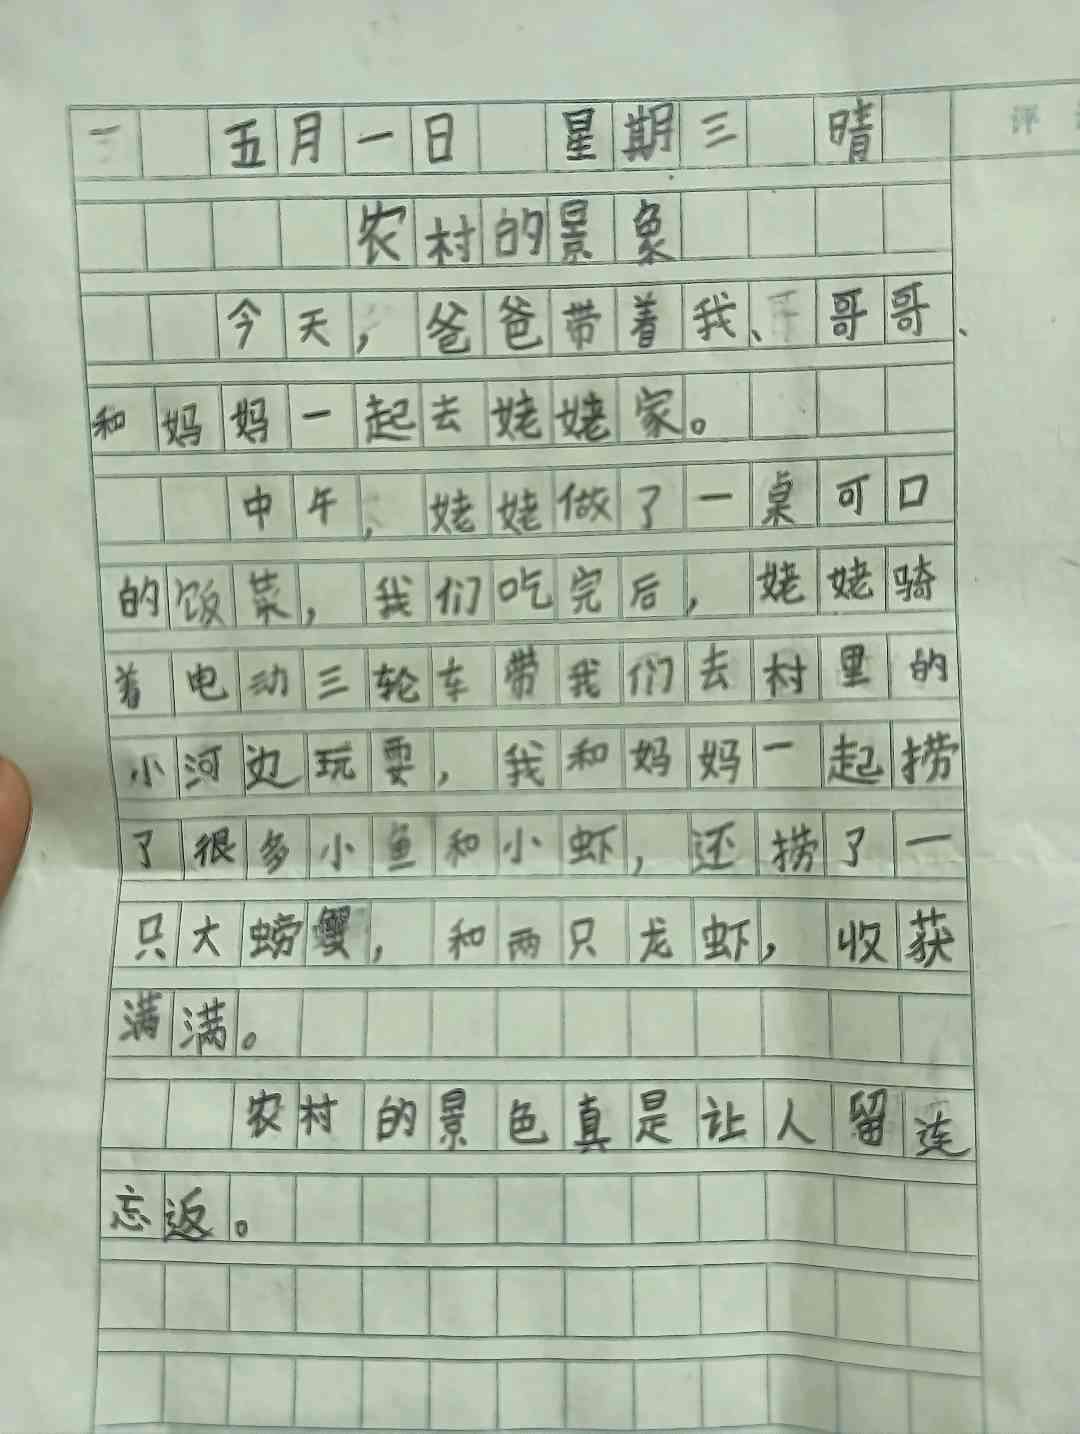 五月一日 星期三 晴
评
农村的景象
今天，爸爸带着我、哥哥、
和妈妈一起去姥姥家。
中午，姥姥做了一桌可口
的饭菜，我们吃完后，姥姥骑
着电动三轮车带我们去村里的
小河边玩耍，我和妈妈一起捞
了很多小鱼和小虾，还捞了一
只大螃蟹，和两只龙虾，收获
满满。
农村的景色真是让人留连
忘返。